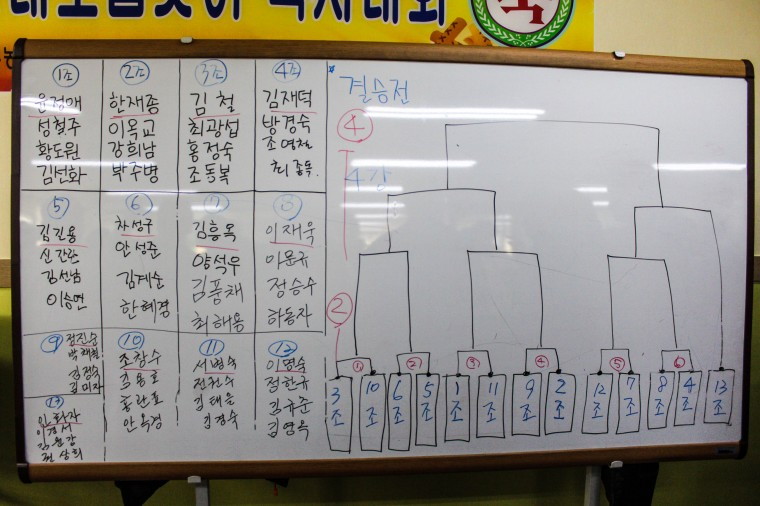 대보름맞이 윷놀이대회
1조
윤정애
성철주
황도원
김선화
2조
한재종
이옥교
강희남
박주병
3조
김철
최광섭
홍정숙
조동복
4조
김재덕
방경숙
조연천
최종욱.
5
김진용
신간란
김선남
이승연
6
차성구
안성준
김계순
한혜경
7
김흥옥
양석우
김풍채
최해용
8
이재욱
이윤규
정승수
하동자
9
정진순
박해화
김정숙
김미자
10
조창수
김동호
안옥경
11
서병숙
전천수
김태을
김경숙
12
이명숙
정한규
김규준
김영옥
13
전상희
결승전
④
4강
②
① ② ③ ④ ⑤ ⑥
3조 10조 6조 5조 1조 11조 9조 2조 12조 7조 8조 4조 13조